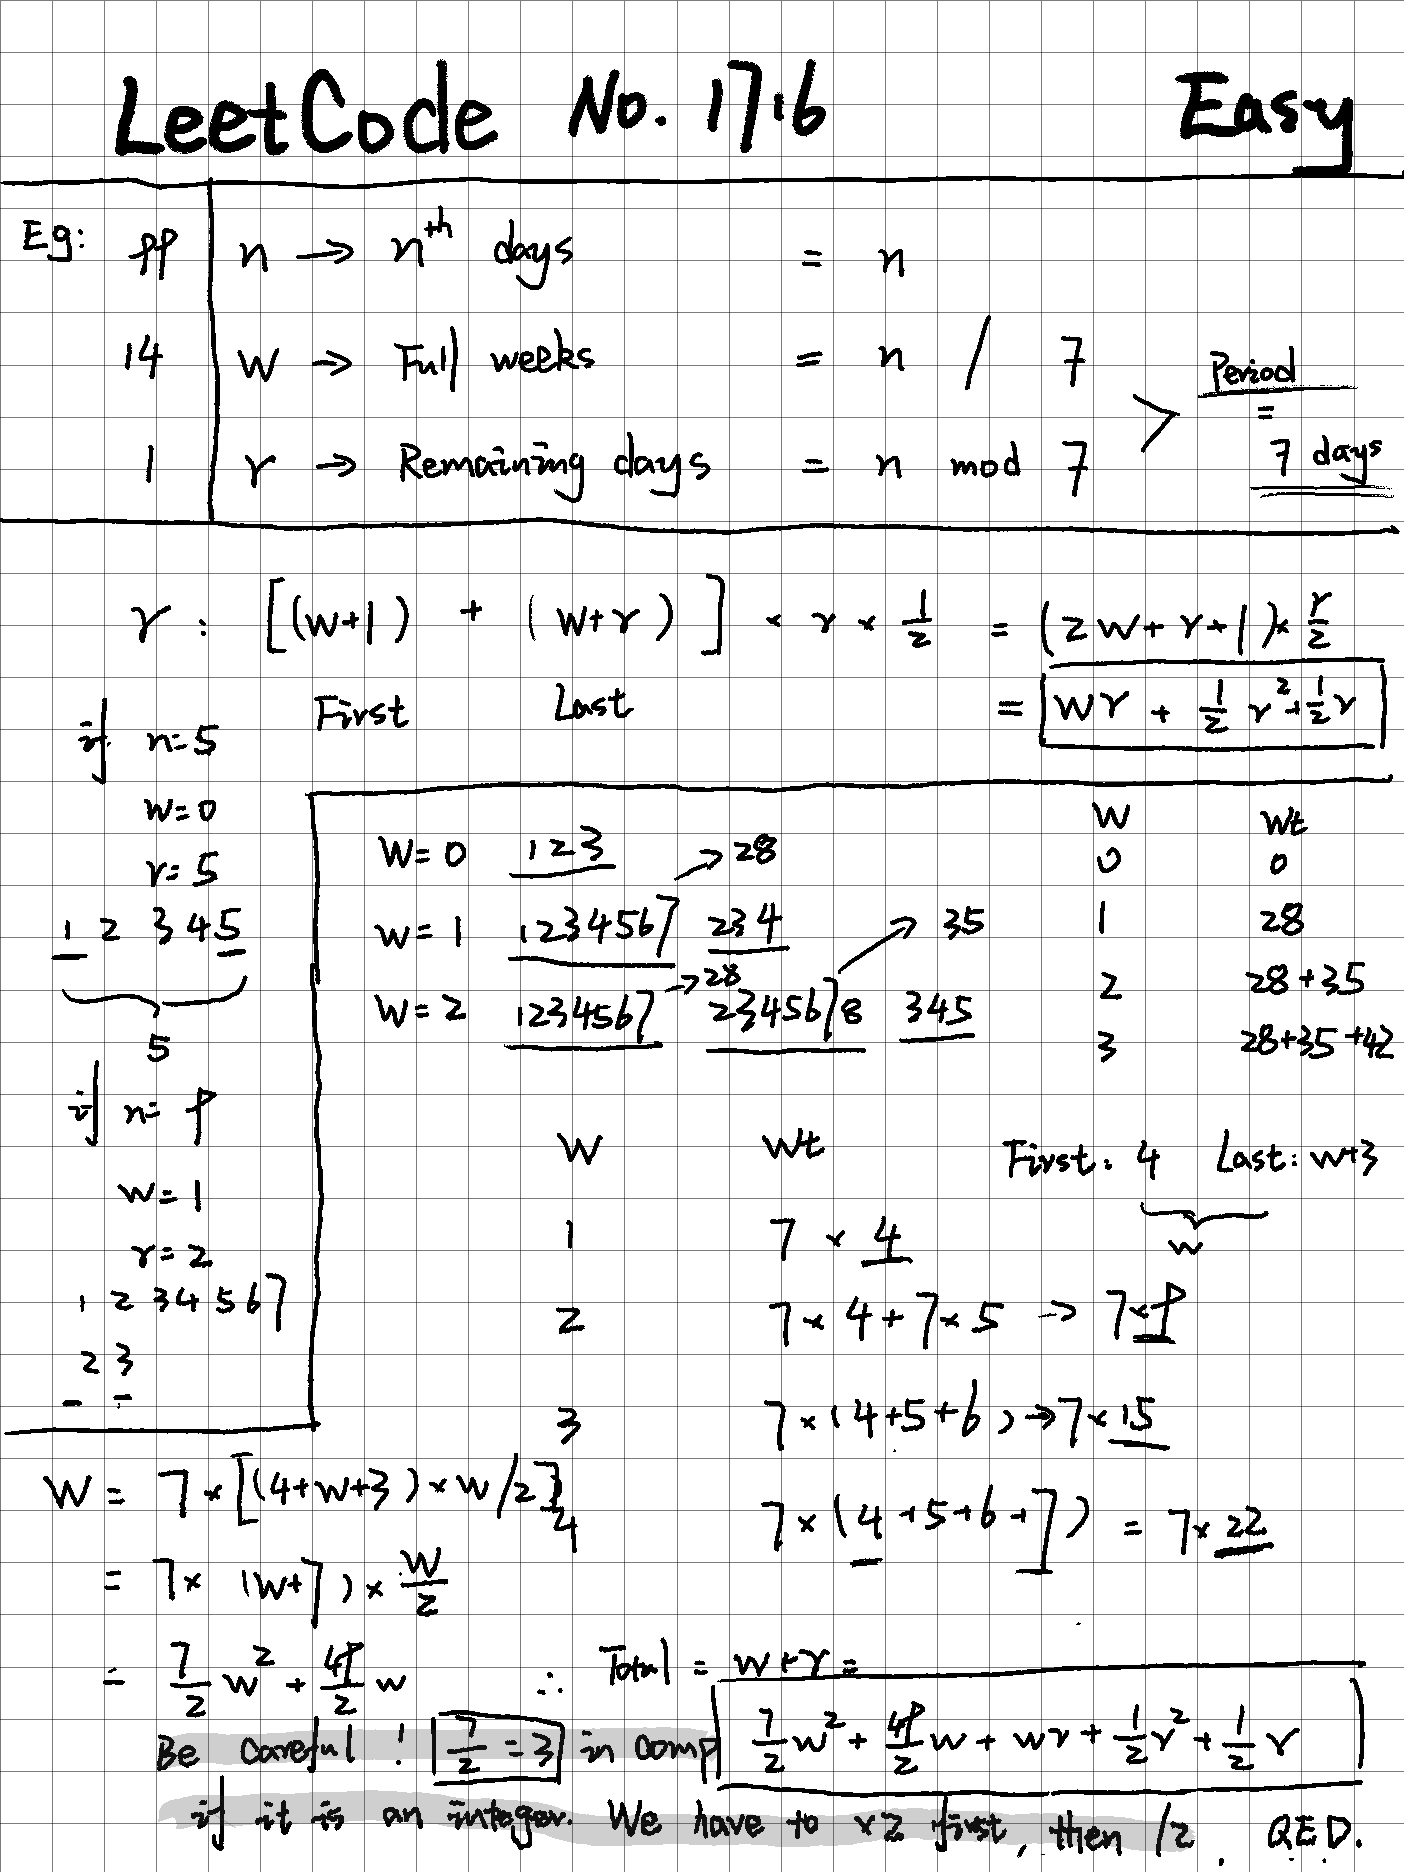 LeetCode No. 1716 Easy
Eg: 99 n → nth days = n
14 W → Full weeks = n / 7
1 r → Remaining days = n mod 7
> Period
=
7 days
r : [(W+1) + (W+r)] × r × 1/2 = (2W+r+1)× r/2
First Last = Wr + 1/2 r²+1/2 r
if n=5
w=0
r=5
1 2 3 4 5
5
if n= 9
w=1
r=2
1 2 3 4 5 6 7
2 3
W=0 1 2 3
w=1 1234567 → 28 234
W=2 1234567 → 28 2345678 → 35 345
W Wt
0 0
1 28
2 28+35
3 28+35+42
W Wt First: 4 Last: w+3
w
1 7 × 4
2 7× 4+7×5 → 7×9
3 7×(4+5+6) → 7×15
4 7×(4+5+6+7) = 7×22
W = 7×[(4+w+3)×w/2]
= 7× (W+7)× W/2
= 7/2 w² + 49/2 w
∴ Total = w+r =
7/2 w² + 49/2 w + wr + 1/2 r² + 1/2 r
Be careful ! 7/2 = 3 in comp
if it is an integer. We have to ×2 first, then /2 . Q.E.D.